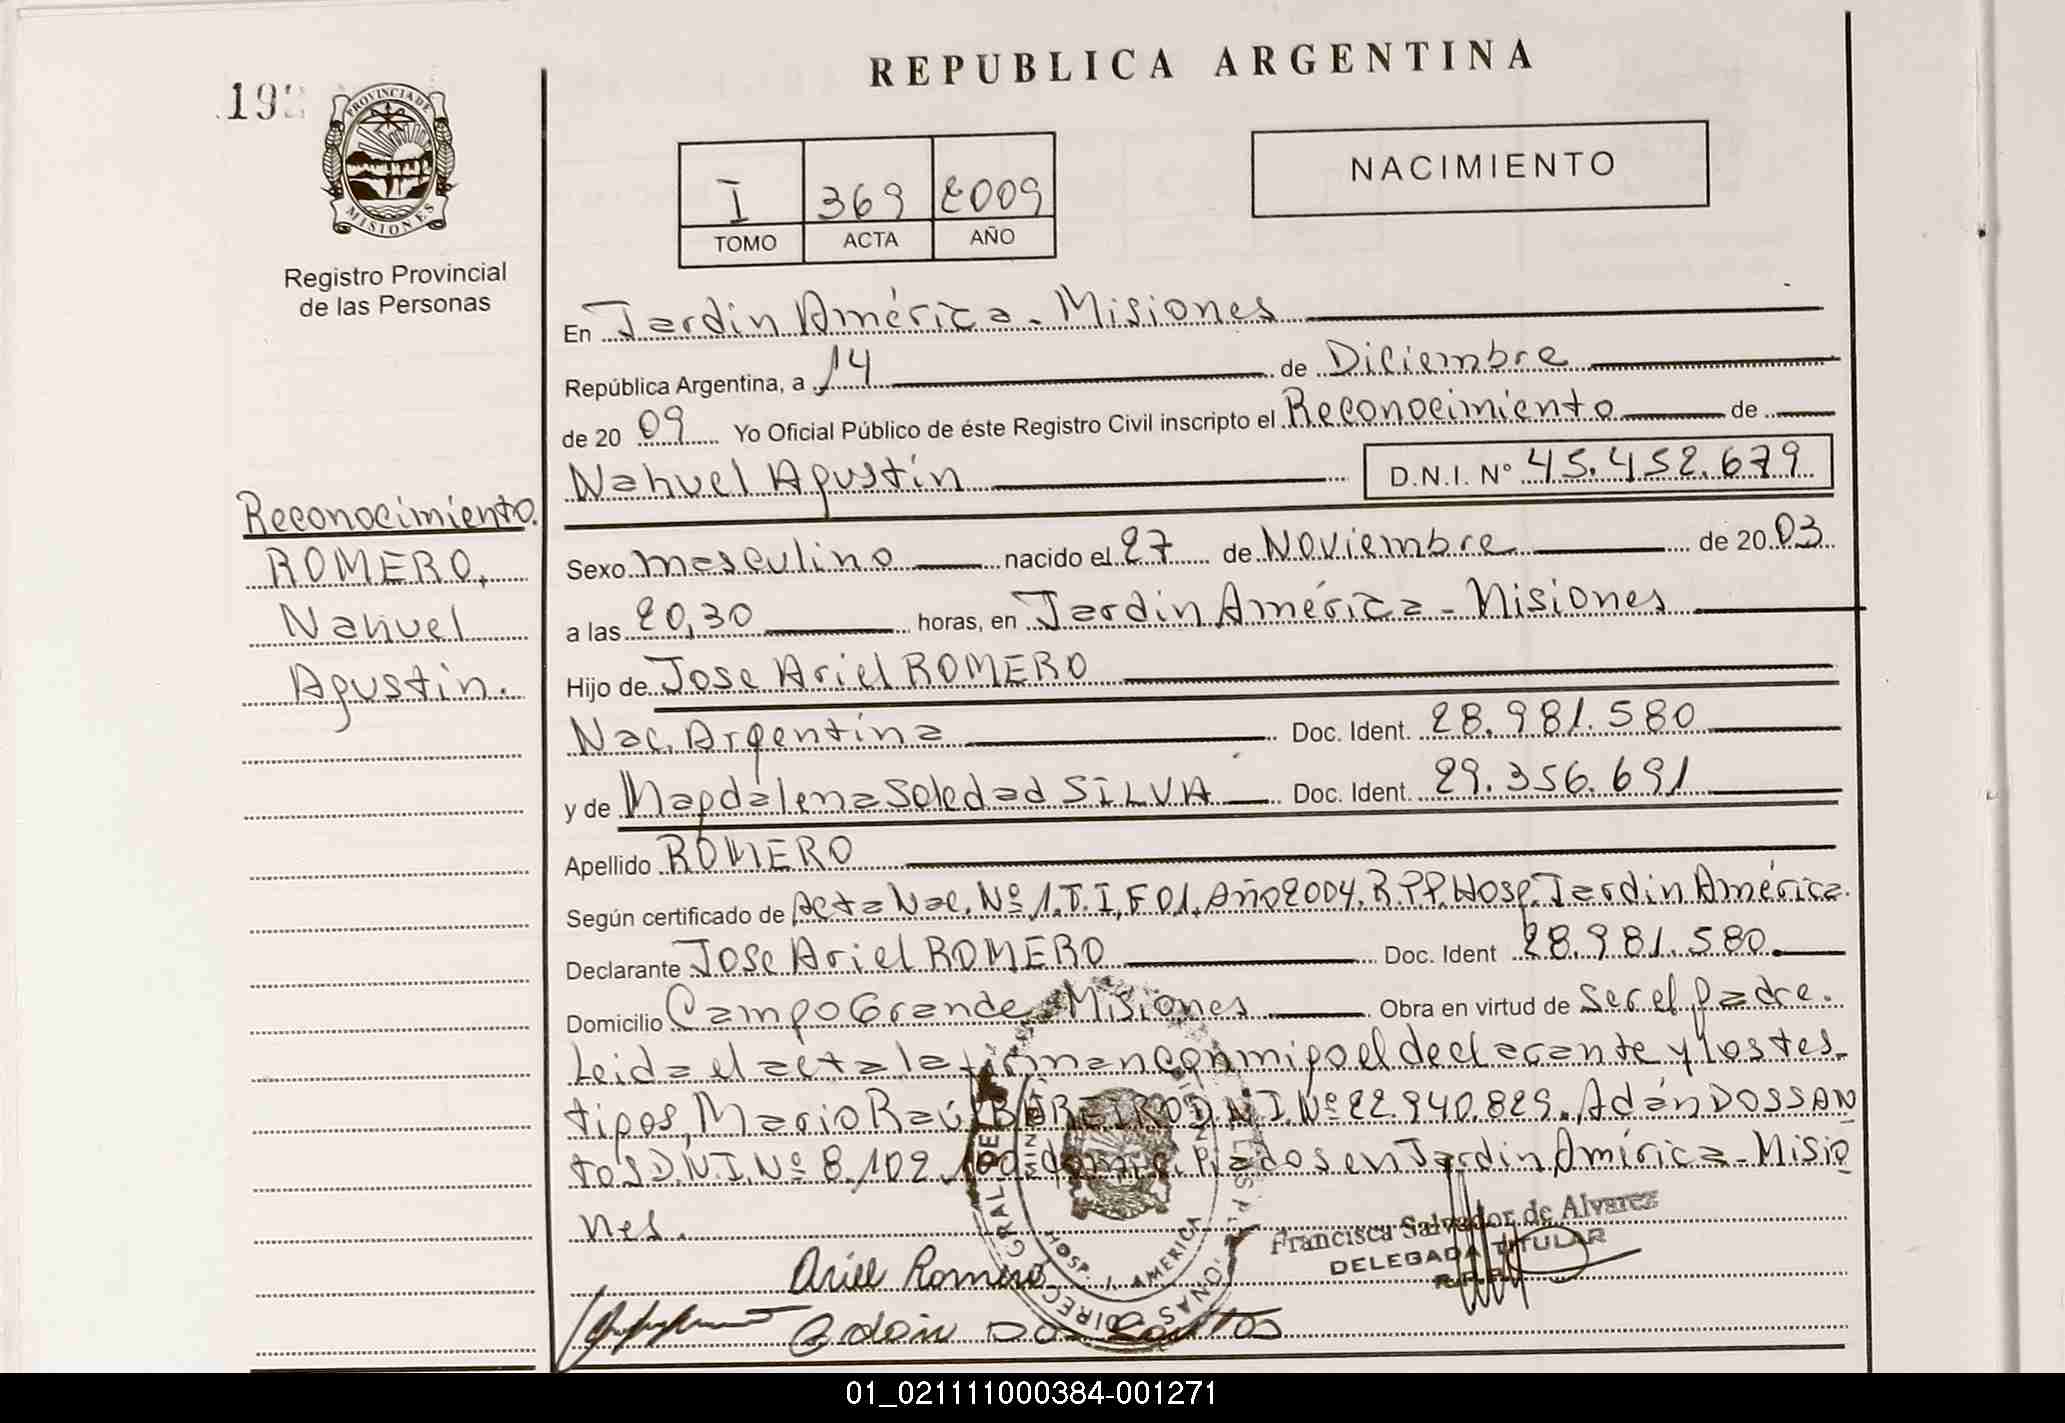 REPUBLICA ARGENTINA
PROVINCIA DE
MISIONES
Registro Provincial
de las Personas
I 369 2009
TOMO ACTA AÑO
NACIMIENTO
Reconocimiento.
ROMERO,
Nahuel
Agustín.
En Jardin América - Misiones
República Argentina, a 14 de Diciembre
de 20 09 Yo Oficial Público de éste Registro Civil inscripto el Reconocimiento de
Nahuel Agustín D.N.I. Nº 45.452.679
Sexo masculino nacido el 27 de Noviembre de 20 03
a las 20,30 horas, en Jardin América - Misiones
Hijo de Jose Ariel ROMERO
Nac. Argentina Doc. Ident. 28.981.580
y de Magdalena Soledad SILVA Doc. Ident. 29.356.691
Apellido ROMERO
Según certificado de Acta Nac. Nº 1.T.I, F 01. Año 2004. R.P.P. Hosp. Jardin América.
Declarante Jose Ariel ROMERO Doc. Ident 28.981.580.
Domicilio Campo Grande Misiones Obra en virtud de Ser el padre.
Leida el acta la firman conmigo el declarante y los tes-
tigos, Mario Raúl BAREIRO D.N.I. Nº 22.940.829. Adán DOSSAN
tos D.N.I. Nº 8.102 domiciliados en Jardin América - Misio
nes.
Francisca Salvador de Alvarez
DELEGADA TITULAR
R.P.P.
Ariel Romero
Adan Dos Santos
HOSP. J. AMERICA
01_021111000384-001271